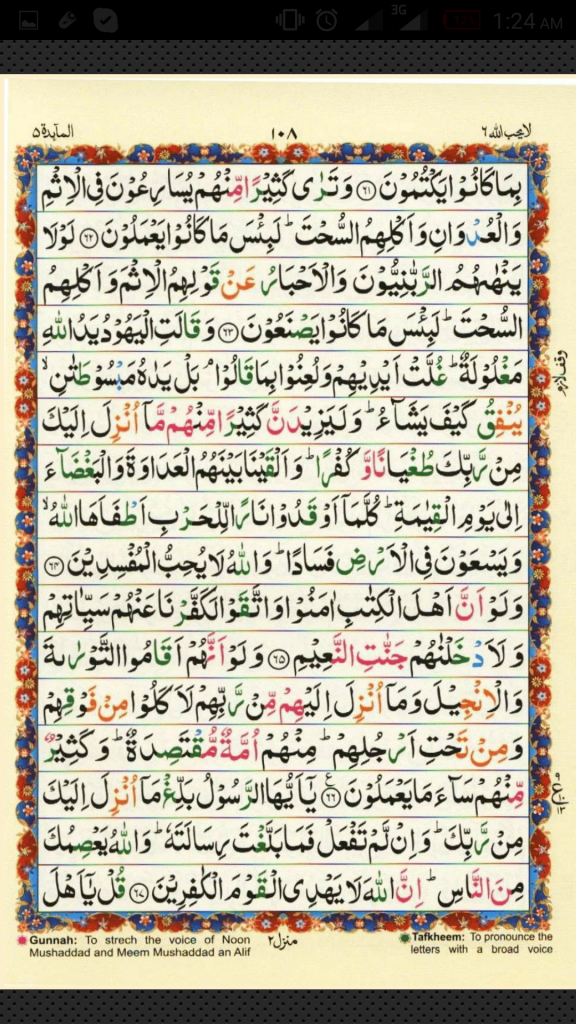 3G 1:24 AM
المآىِٕدة ۵ ١٠٨ لا يحب الله ٦
بِمَا كَانُوۡا يَكۡتُمُوۡنَ ﴿۶۱﴾ وَ تَرٰی كَثِيۡرًا مِّنۡهُمۡ يُسَارِعُوۡنَ فِی الۡاِثۡمِ
وَ الۡعُدۡوَانِ وَ اَكۡلِهِمُ السُّحۡتَ ؕ لَبِئۡسَ مَا كَانُوۡا يَعۡمَلُوۡنَ ﴿۶۲﴾ لَوۡلَا
يَنۡهٰىهُمُ الرَّبّٰنِيُّوۡنَ وَ الۡاَحۡبَارُ عَنۡ قَوۡلِهِمُ الۡاِثۡمَ وَ اَكۡلِهِمُ
السُّحۡتَ ؕ لَبِئۡسَ مَا كَانُوۡا يَصۡنَعُوۡنَ ﴿۶۳﴾ وَ قَالَتِ الۡيَهُوۡدُ يَدُ اللّٰهِ
مَغۡلُوۡلَةٌ ؕ غُلَّتۡ اَيۡدِيۡهِمۡ وَ لُعِنُوۡا بِمَا قَالُوۡا ۘ بَلۡ يَدٰهُ مَبۡسُوۡطَتٰنِ ۙ
وقف لازم
يُنۡفِقُ كَيۡفَ يَشَآءُ ؕ وَ لَيَزِيۡدَنَّ كَثِيۡرًا مِّنۡهُمۡ مَّاۤ اُنۡزِلَ اِلَيۡكَ
مِنۡ رَّبِّكَ طُغۡيَانًا وَّ كُفۡرًا ؕ وَ اَلۡقَيۡنَا بَيۡنَهُمُ الۡعَدَاوَةَ وَ الۡبَغۡضَآءَ
اِلٰی يَوۡمِ الۡقِيٰمَةِ ؕ كُلَّمَاۤ اَوۡقَدُوۡا نَارًا لِّلۡحَرۡبِ اَطۡفَاَهَا اللّٰهُ ۙ
وَ يَسۡعَوۡنَ فِی الۡاَرۡضِ فَسَادًا ؕ وَ اللّٰهُ لَا يُحِبُّ الۡمُفۡسِدِيۡنَ ﴿۶۴﴾
وَ لَوۡ اَنَّ اَهۡلَ الۡكِتٰبِ اٰمَنُوۡا وَ اتَّقَوۡا لَكَفَّرۡنَا عَنۡهُمۡ سَيِّاٰتِهِمۡ
وَ لَاَدۡخَلۡنٰهُمۡ جَنّٰتِ النَّعِيۡمِ ﴿۶۵﴾ وَ لَوۡ اَنَّهُمۡ اَقَامُوا التَّوۡرٰىةَ
وَ الۡاِنۡجِيۡلَ وَ مَاۤ اُنۡزِلَ اِلَيۡهِمۡ مِّنۡ رَّبِّهِمۡ لَاَكَلُوۡا مِنۡ فَوۡقِهِمۡ
وَ مِنۡ تَحۡتِ اَرۡجُلِهِمۡ ؕ مِنۡهُمۡ اُمَّةٌ مُّقۡتَصِدَةٌ ؕ وَ كَثِيۡرٌ
مِّنۡهُمۡ سَآءَ مَا يَعۡمَلُوۡنَ ﴿۶۶﴾ يٰۤاَيُّهَا الرَّسُوۡلُ بَلِّغۡ مَاۤ اُنۡزِلَ اِلَيۡكَ
مِنۡ رَّبِّكَ ؕ وَ اِنۡ لَّمۡ تَفۡعَلۡ فَمَا بَلَّغۡتَ رِسَالَتَهٗ ؕ وَ اللّٰهُ يَعۡصِمُكَ
مِنَ النَّاسِ ؕ اِنَّ اللّٰهَ لَا يَهۡدِی الۡقَوۡمَ الۡكٰفِرِيۡنَ ﴿۶۷﴾ قُلۡ يٰۤاَهۡلَ
منزل ٢
Gunnah: To strech the voice of Noon
Mushaddad and Meem Mushaddad an Alif
Tafkheem: To pronounce the
letters with a broad voice